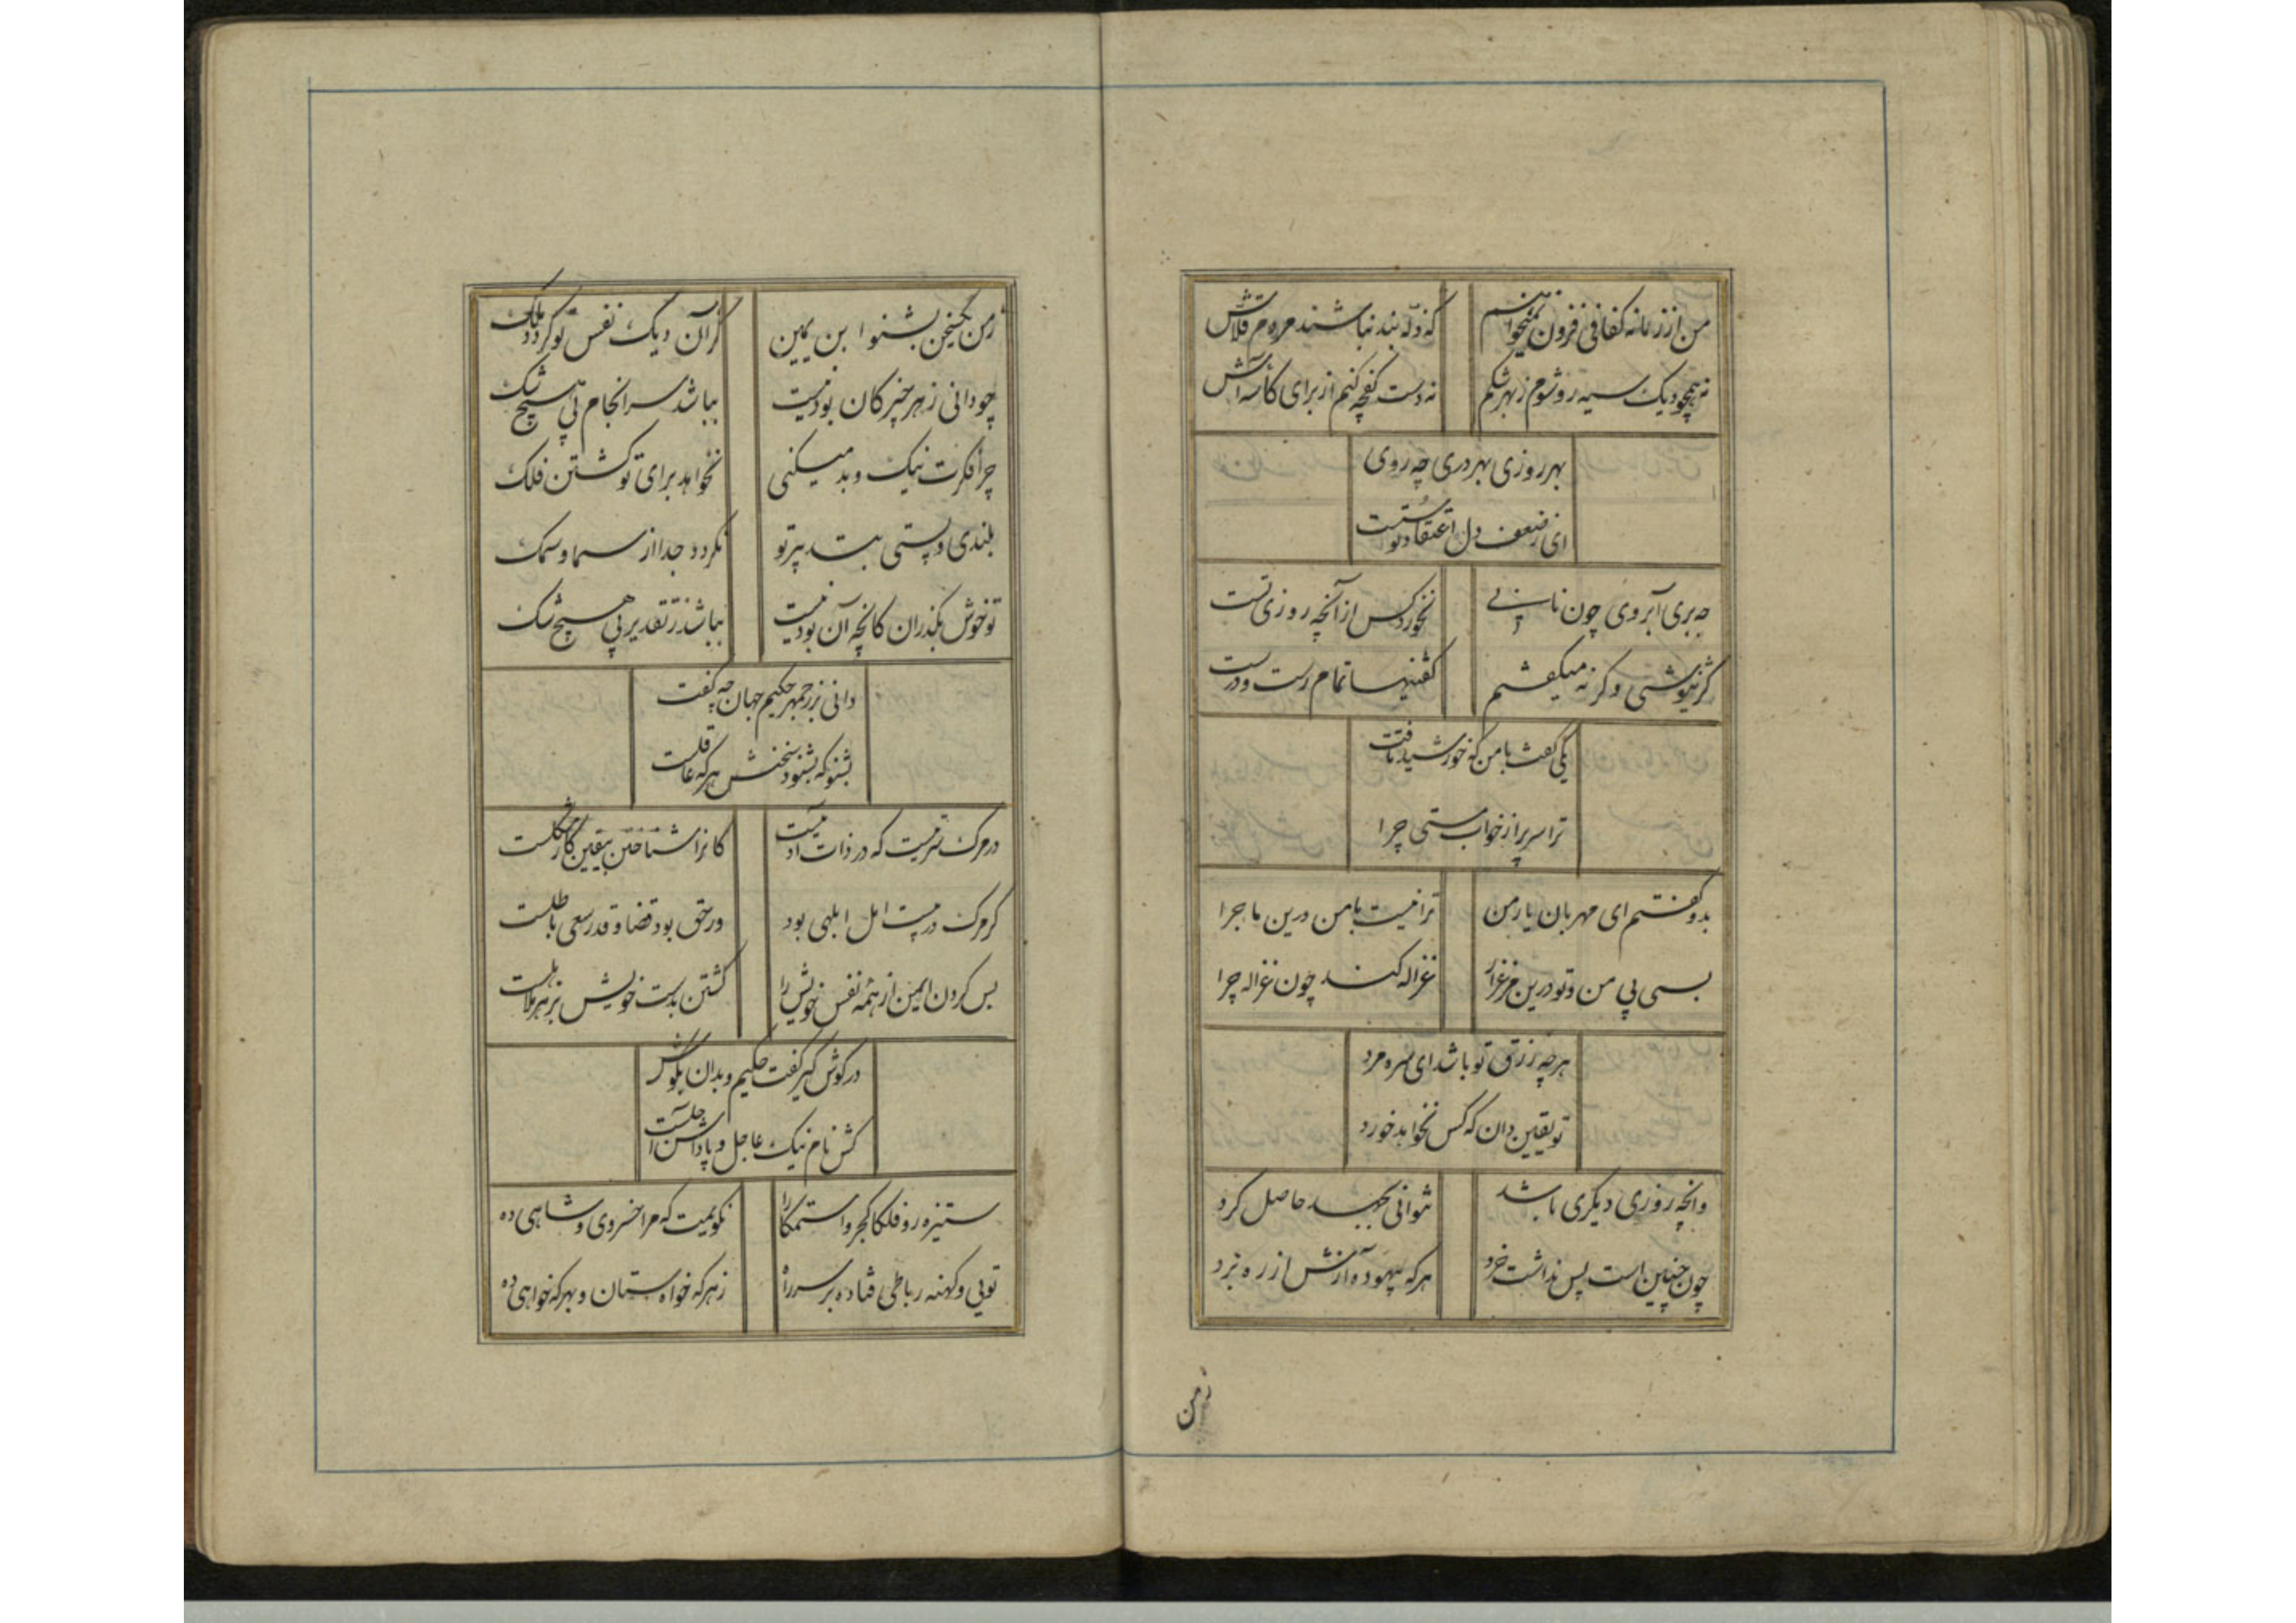 من از زمانه کفافی فزون نمیخواهم که دله بند نباشند مردم قلاش
نه همچو دیک سیه رو شوم ز بهر شکم نه دست کفچه کنم از برای کاسه آش
بهر روزی بهر دری چه روی
ای ز ضعف دل اعتقاد تو سست
چه بری آبروی چون نان پی نخورد کس از آنچه روزی تست
گر نیوشی و کر نه میکفتم کفتنیها تمام رست و درست
یکی گفت با من که خورشید تافت
ترا سر پر از خواب مستی چرا
بدو گفتم ای مهربان یار من ترا نیست با من درین ماجرا
بسی بی من و تو درین مرغزار غزاله کند چون غزاله چرا
هر چه رزق تو باشد ای سره مرد
تو یقین دان که کس نخواهد خورد
وانچه روزی دیکری باشد نتوانی بجهد حاصل کرد
چون چنین است پس نداشت خرد هر که بیهوده آزش از ره برد
زمن
ز من یکسخن بشنو ابن یمین گر آن دیک نفس تو کردد ملک
چو دانی ز هر چیز کان بودنیست بباشد سرانجام بی هیچ شک
چرا فکرت نیک و بد میکنی نخواهد برای تو کشتن فلک
بلندی و پستی بتدبیر تو نکردد جدا از سما و سمک
تو خوش بکذران کانچه آن بودنیست بباشد ز تقدیر بی هیچ شک
دانی بزرجمهر حکیم جهان چه کفت
بشنو که بشنود سخنش هر که عاقلست
در مرک سریست که در ذات آدمیست کانرا شناختن بیقین کار مشکلست
کر مرک در پیست امل ابلهی بود ور حق بود قضا و قدر سعی باطلست
پس کردن ایمن از همه نفس خویش را کشتن بدست خویش بزهر هلاهلست
در کوش کیر کفت حکیم و بدان بکوش
کش نام نیک عاجل و پاداش آجلست
ستیزه رو فلکا کجروا ستمکارا نکویمت که مرا خسروی و شاهی ده
تویی و کهنه رباطی فتاده بر سر راه ز هر که خواه ستان و بهر که خواهی ده